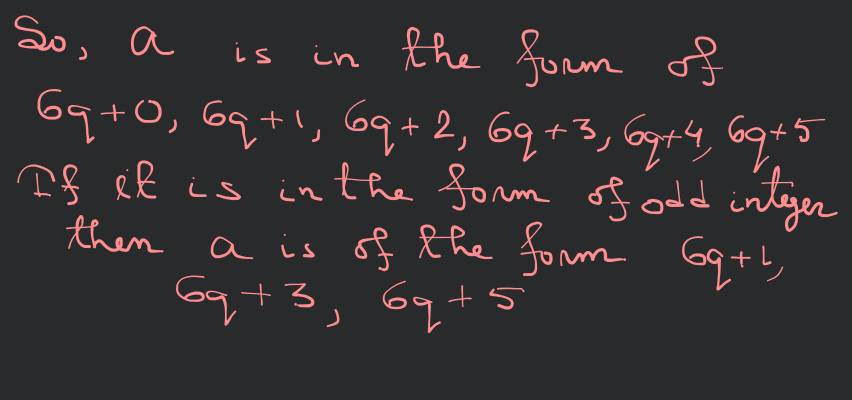 So, a is in the form of
6q+0, 6q+1, 6q+2, 6q+3, 6q+4, 6q+5
If it is in the form of odd integer
then a is of the form 6q+1,
6q+3, 6q+5